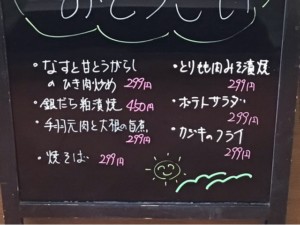 おそうざい
・なすと甘とうがらし
のひき肉炒め 299円
・銀だら粕漬焼 450円
・手羽元肉と大根の旨煮
299円
・焼そば 299円
・とりもも肉みそ漬焼
299円
・ポテトサラダ
299円
・カジキのフライ
299円